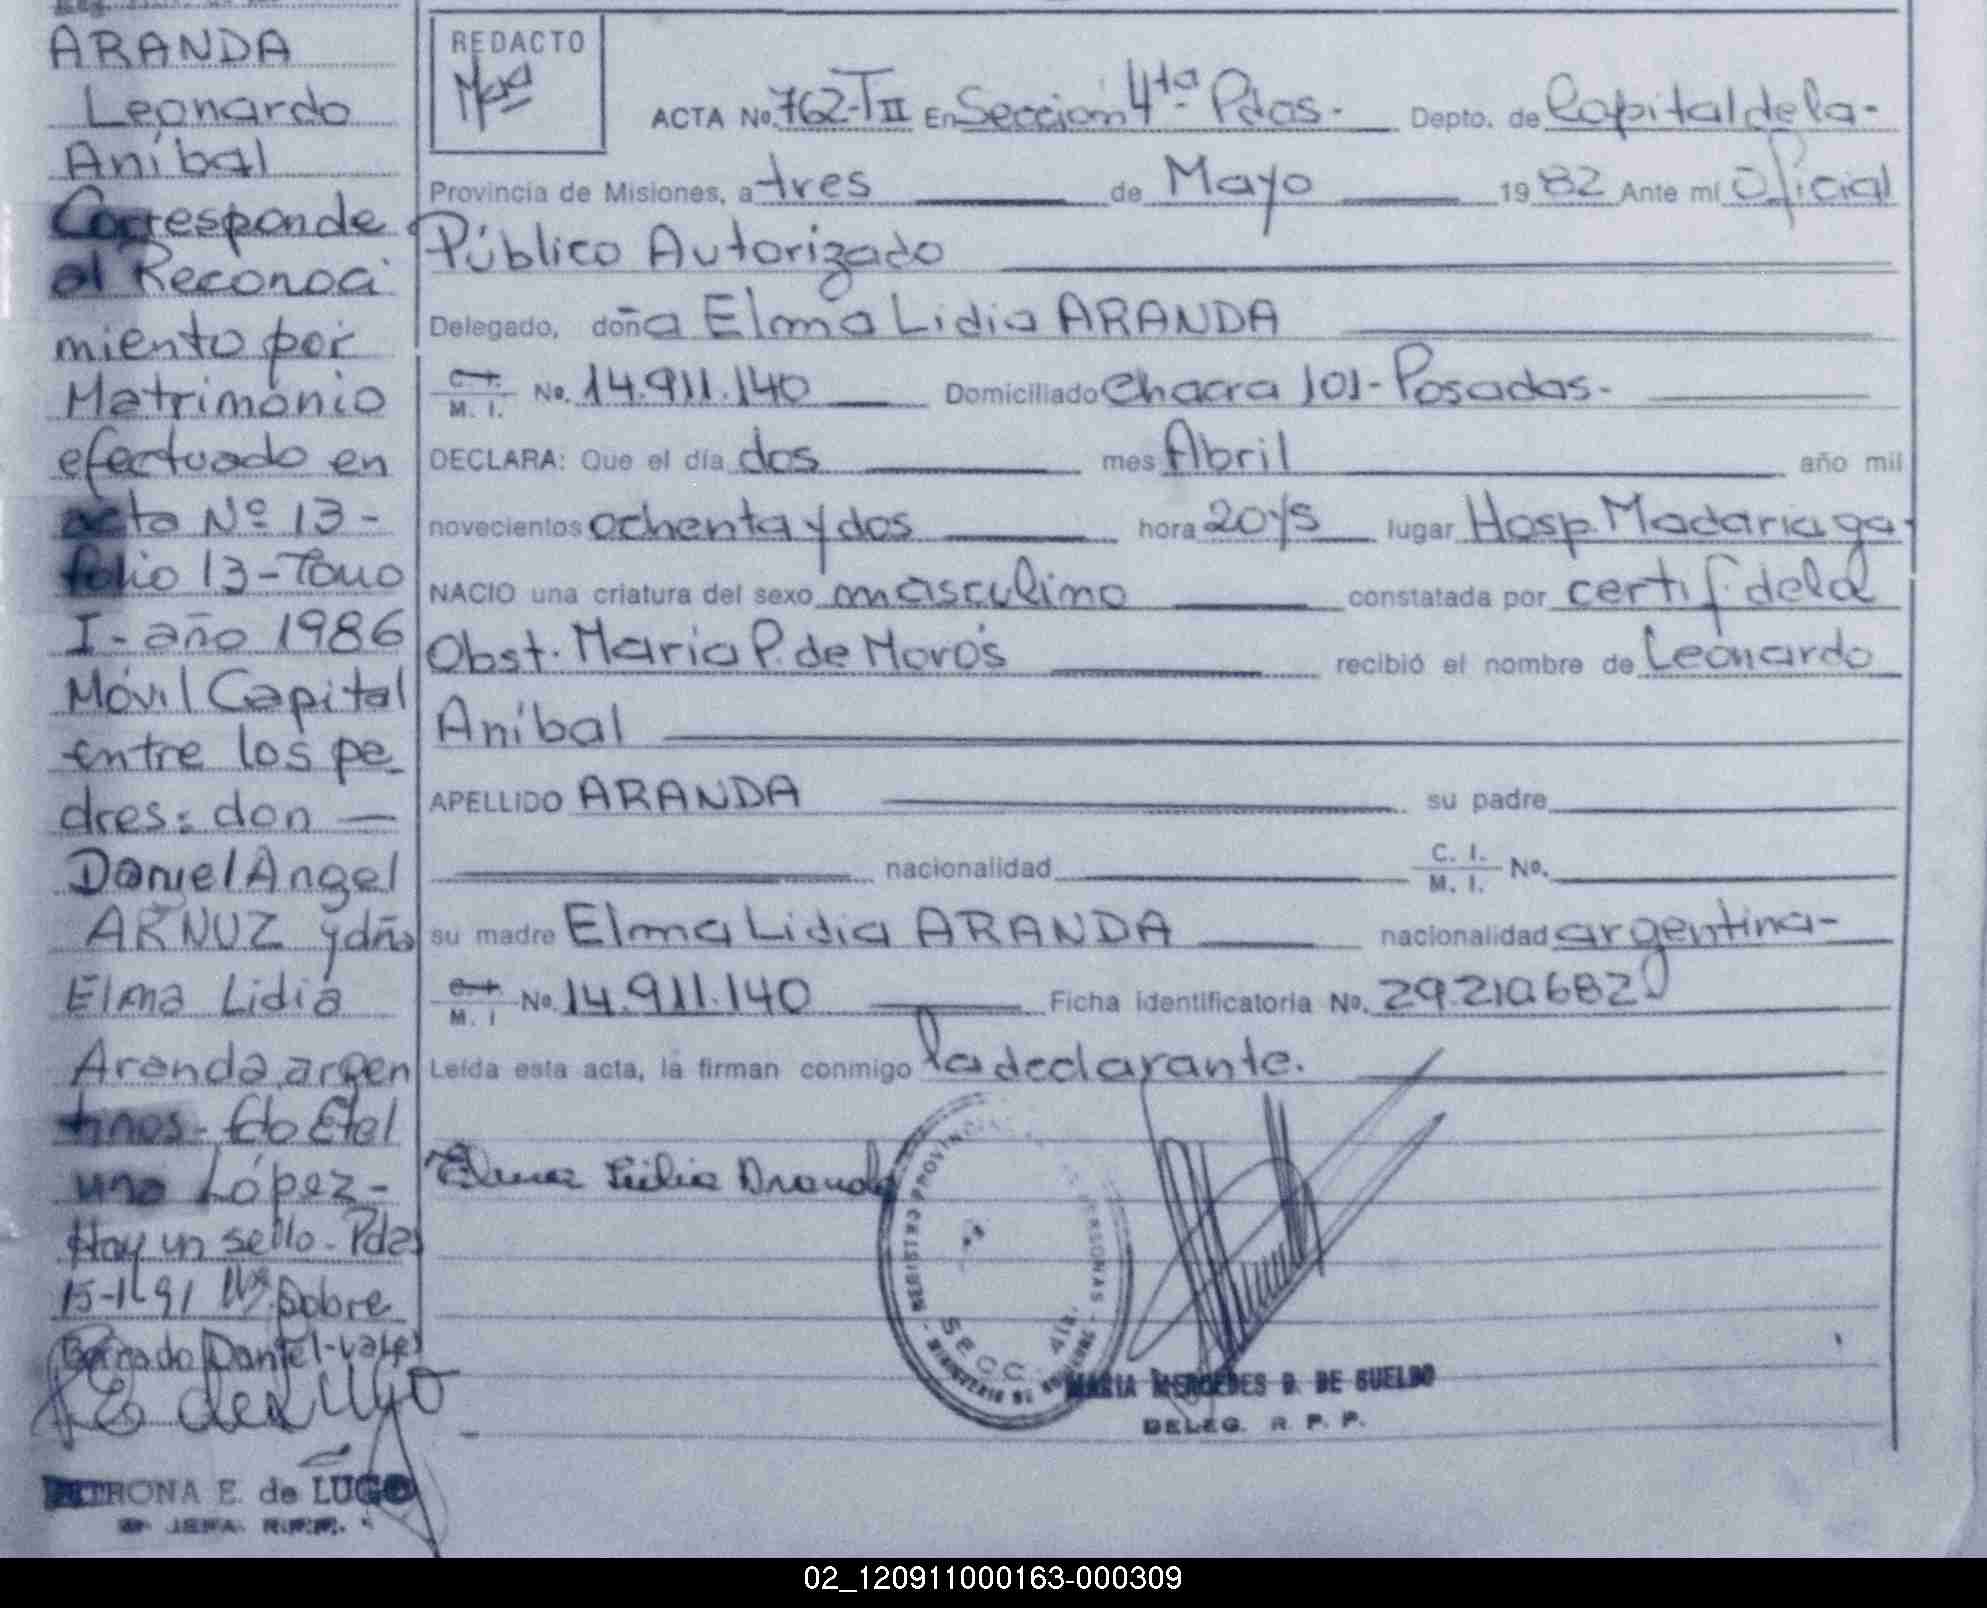 ARANDA
Leonardo
Aníbal
Corresponde
al Reconoci
miento por
Matrimonio
efectuado en
acta Nº 13-
folio 13-Tomo
I-año 1986
Móvil Capital
entre los pa-
dres: don —
Daniel Angel
ARNUZ y dña
Elma Lidia
Aranda, argen
tinos- fdo Etel
una López-
Hay un sello. Pdas
15-11-91 Sobre
Borrado Daniel-vale
PETRONA E. de LUGO
JEFA. R.P.P.
REDACTO
ACTA No. 762-TII En Sección 4ta Pdas.- Depto. de Capital de la-
Provincia de Misiones, a tres de Mayo 1982 Ante mí Oficial
Público Autorizado
Delegado, doña Elma Lidia ARANDA
C. I. M. I. No. 14.911.140 Domiciliado Chacra 101-Posadas-
DECLARA: Que el día dos mes Abril año mil
novecientos ochenta y dos hora 20y5 lugar Hosp. Madariaga-
NACIO una criatura del sexo masculino constatada por certif. de la
Obst. María P. de Morós recibió el nombre de Leonardo
Aníbal
APELLIDO ARANDA su padre
nacionalidad C. I. M. I. No.
su madre Elma Lidia ARANDA nacionalidad argentina-
C. I. M. I No. 14.911.140 Ficha identificatoria No. 29.210.682
Leída esta acta, la firman conmigo la declarante.
Elma Lidia Aranda
REGISTRO PROVINCIAL DE LAS PERSONAS
SECC. 4ta.
MARIA MERCEDES B. DE SUELDO
DELEG. R. P. P.
02_120911000163-000309